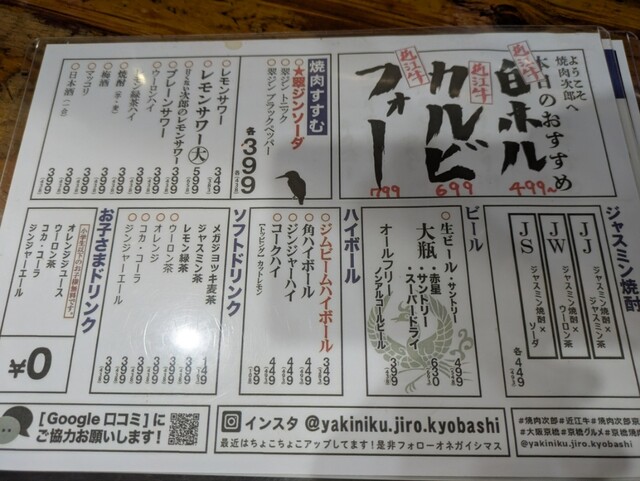 ようこそ
焼肉次郎へ
本日のおすすめ
近江牛
白ホル
499~
近江牛
カルビ
699
近江牛
フォー
799
焼肉すすむ
★翠ジンソーダ
翠ジントニック
翠ジンブラックペッパー
各399
レモンサワー 349
レモンサワー 大 599
甘くない次郎のレモンサワー 399
プレーンサワー 399
ウーロンハイ 399
緑茶ハイ 399
焼酎(芋・麦) 399
梅酒 399
マッコリ 399
日本酒(一合)
ジャスミン焼酎
JJ
ジャスミン焼酎×
ジャスミン茶
JW
ジャスミン焼酎×
ウーロン茶
JS
ジャスミン焼酎×
ソーダ
各449
ビール
生ビール・サントリー 499
大瓶 630
・赤星
・サントリー
・スーパードライ
オールフリー 399
ノンアルコールビール
ハイボール
ジムビームハイボール 349
角ハイボール 449
ジンジャーハイ 449
コークハイ 449
【トッピング】カットレモン 99
ソフトドリンク
メガジョッキ麦茶 149
ジャスミン茶
レモン緑茶 399
ウーロン茶 399
オレンジ 399
コカ・コーラ 399
ジンジャーエール 399
お子さまドリンク
小学生以下のお子様無料です。
オレンジジュース
ウーロン茶
コカ・コーラ
ジンジャーエール
¥0
[Google 口コミ]に
ご協力お願いします!
インスタ @yakiniku.jiro.kyobashi
最近はちょこちょこアップしてます!是非フォローオネガイシマス
#焼肉次郎#近江牛#焼肉次郎京
#大阪京橋#京橋グルメ#京橋焼肉
@yakiniku.jiro.kyobashi